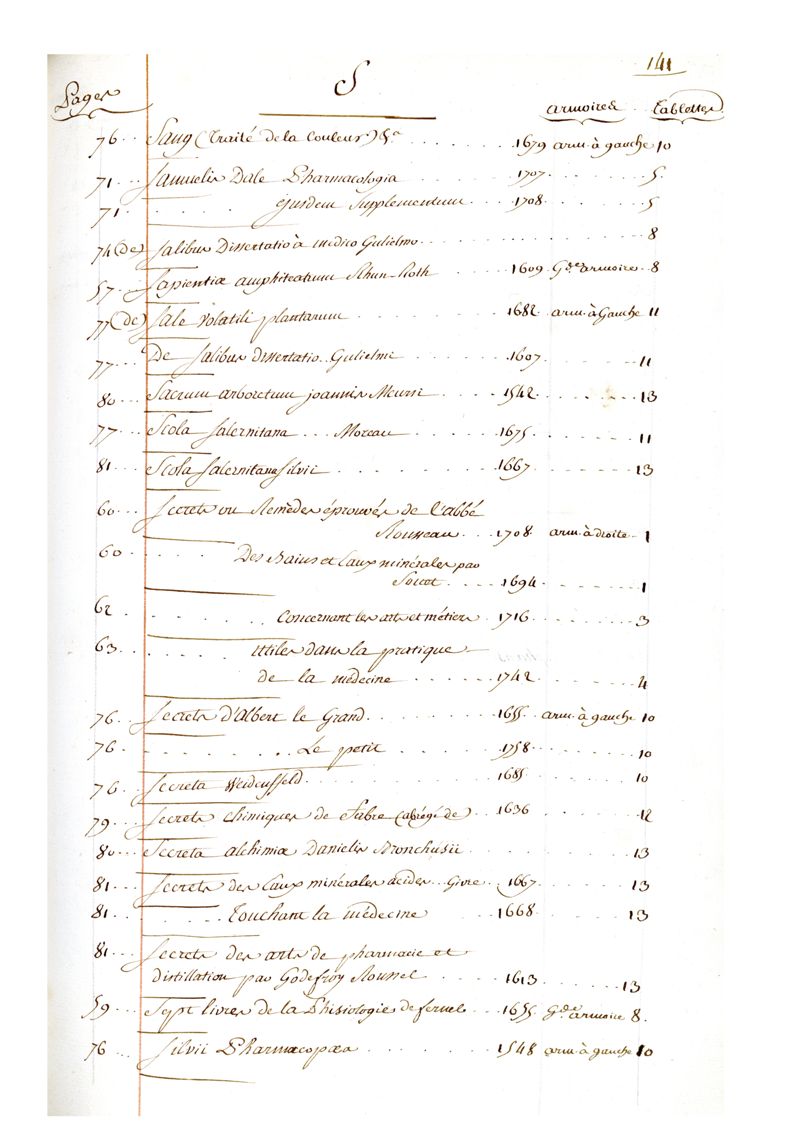 141
S
Pages armoires Tablettes
76 .. Sang (Traité de la Couleur) &.ª ........ 1679 arm. à gauche 10
71 ... Samuelis Dale Pharmacologia ........ 1707 ........ 5.
71 ... ..... ejusdem Supplementum ... 1708 ........ 5
74 (de) Salibus Dissertatio à medico Gulielmo ........ 8
57 ... Sapientiæ amphiteatrum Khun-Roth ..... 1609 G.de armoire . 8
77 (de) Sale volatili plantarum ........ 1682 arm. à Gauche 11
77 ... De Salibus dissertatio .. Gulielmi ........ 1607 ........ 11
80 ... Sacrum arboretum joannis Meursi ..... 1542 ........ 13
77 ... Scola Salernitana ... Moreau ..... 1675 ........ 11
81 ... Scola Salernitana Silvii ........ 1667 ........ 13
60 ... Secrets ou Remèdes éprouvés de l'abbé
Rousseau ... 1708 arm. à droite .. 1
60 ...... Des Bains et Eaux minérales par
.... 1694 ........ 1
62 ........ Concernant les arts et métiers .. 1716 ...... 3
63 ...... utiles dans la pratique
de la médecine ..... 1742 ........ 4
76 .. Secrets d'Albert le Grand ........ 1655 arm. à gauche 10
76 ........ Le petit ........ 1758 ........ 10
76 ... Secreta Weidenfeld ........ 1685 ........ 10
79 ... Secrets chimiques de Fabre (abrégé de) ... 1636 ........ 12
80 ... Secreta alchimiæ Danielis Bronchusii ........ 13
81 ... Secrets des Eaux minérales acides ... Givre . 1667 ...... 13
81 ...... Touchant la médecine ...... 1668 ...... 13
81 ... Secrets des arts de pharmacie et
distillation par Godefroy Roussel ..... 1613 ........ 13
59 ... Sept livres de la Phisiologie de fernel ... 1655 G.de armoire 8.
76 ... Silvii Pharmacopæa ........ 1548 arm. à gauche 10